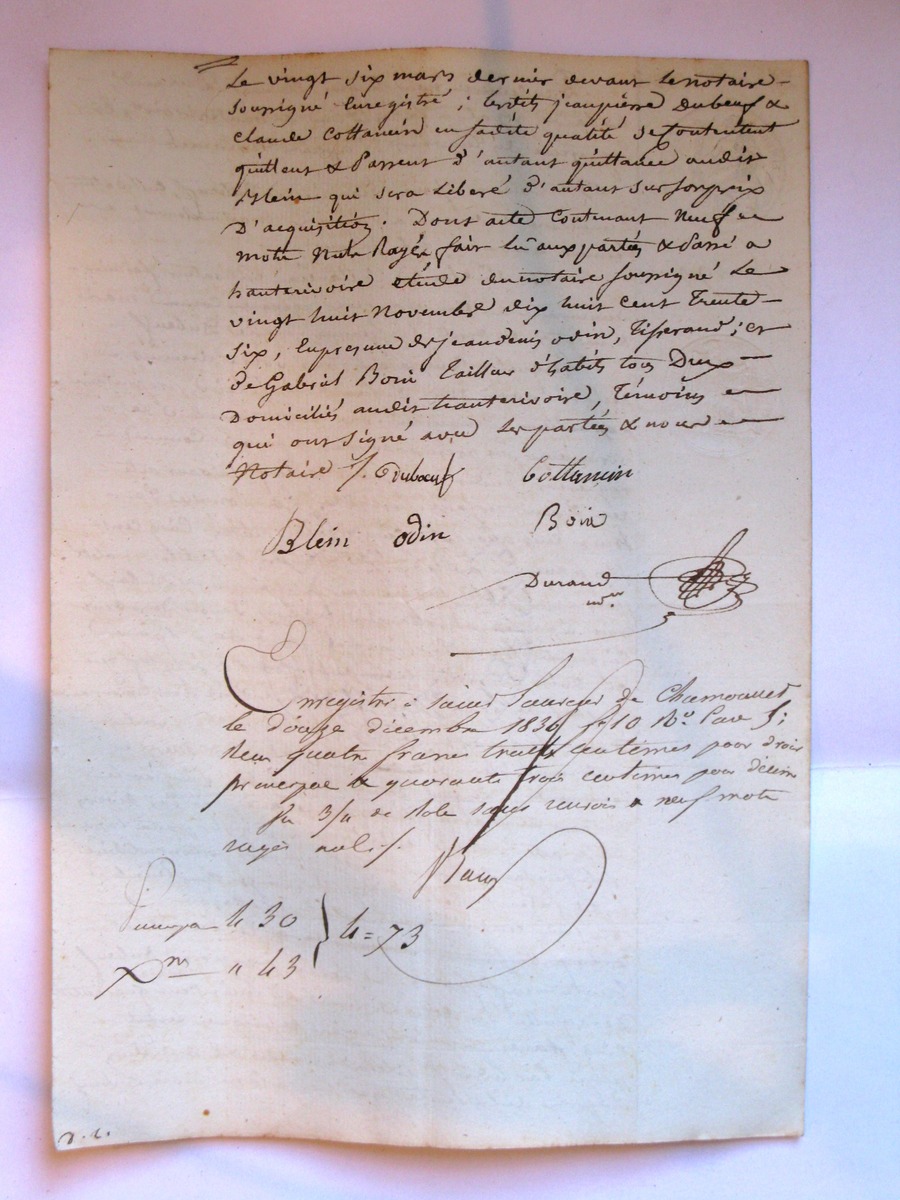 Le vingt six mars dernier devant le notaire
soussigné Enregistré ; lesdits jeanpierre Dubeuf &
Claude Cottancin en sadite qualité se Contentent
quittent & Passent d'autant quittance audit
Blein qui sera Libéré d'autant sur son prix
D'acquisition. Dont acte Contenant Neuf
mots Nuls Rayés, fait lu aux parties & Passé a
hauterivoire étude du notaire soussigné Le
vingt huit Novembre dix huit cent Trente
six, En presence de jean denis odin, Tisserand ; et
de Gabriel Boin Tailleur d'habits tous Deux
Domiciliés audit hauterivoire, Témoins
qui ont Signé avec les parties & nous
Notaire J. Dubœuf Cottancin
Blein odin Boin
Durand
nre.
Enregistré à saint Laurent de Chamousset
le douze décembre 1836 fo 10 Ro. Case
Reçu quatre francs trente centimes pour droit
principal & quarante trois centimes pour décime
de Role sans renvois & neuf mots
rayés nuls.
4 30 } 4 = 73
" 43